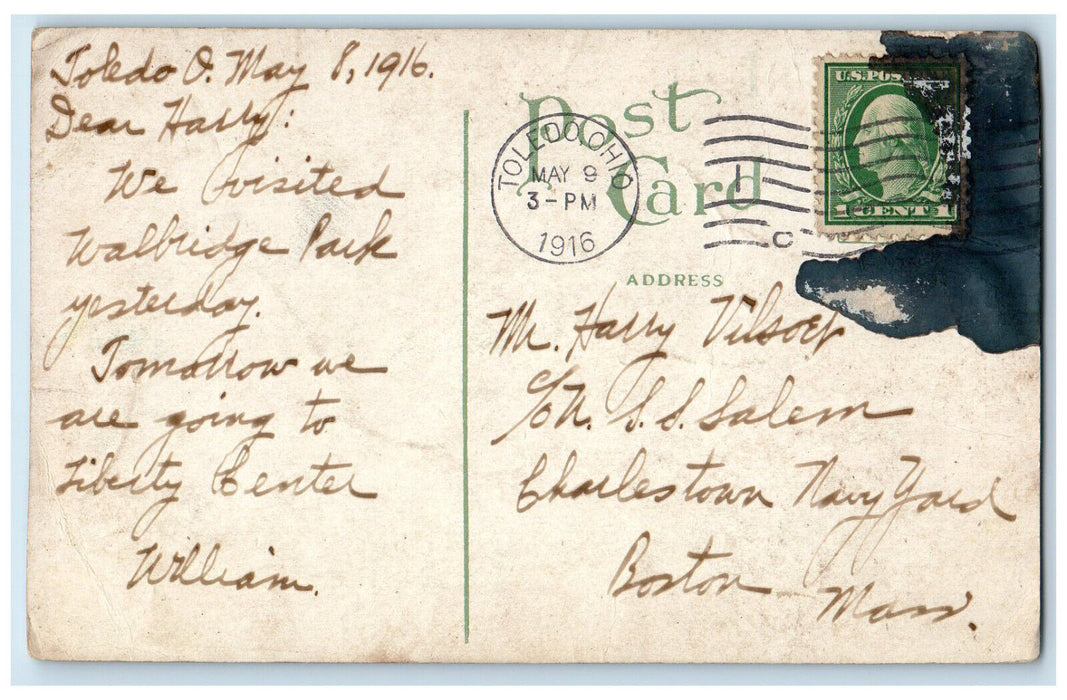 Toledo O. May 8, 1916.
Dear Harry:
We visited
Walbridge Park
yesterday.
Tomorrow we
are going to
Liberty Center
William.
Post
Card
TOLEDO, OHIO
MAY 9
3-PM
1916
1
C
U.S. POS
1 CENT 1
ADDRESS
Mr. Harry
S.S. Salem
Charlestown Navy Yard
Boston
Mass.